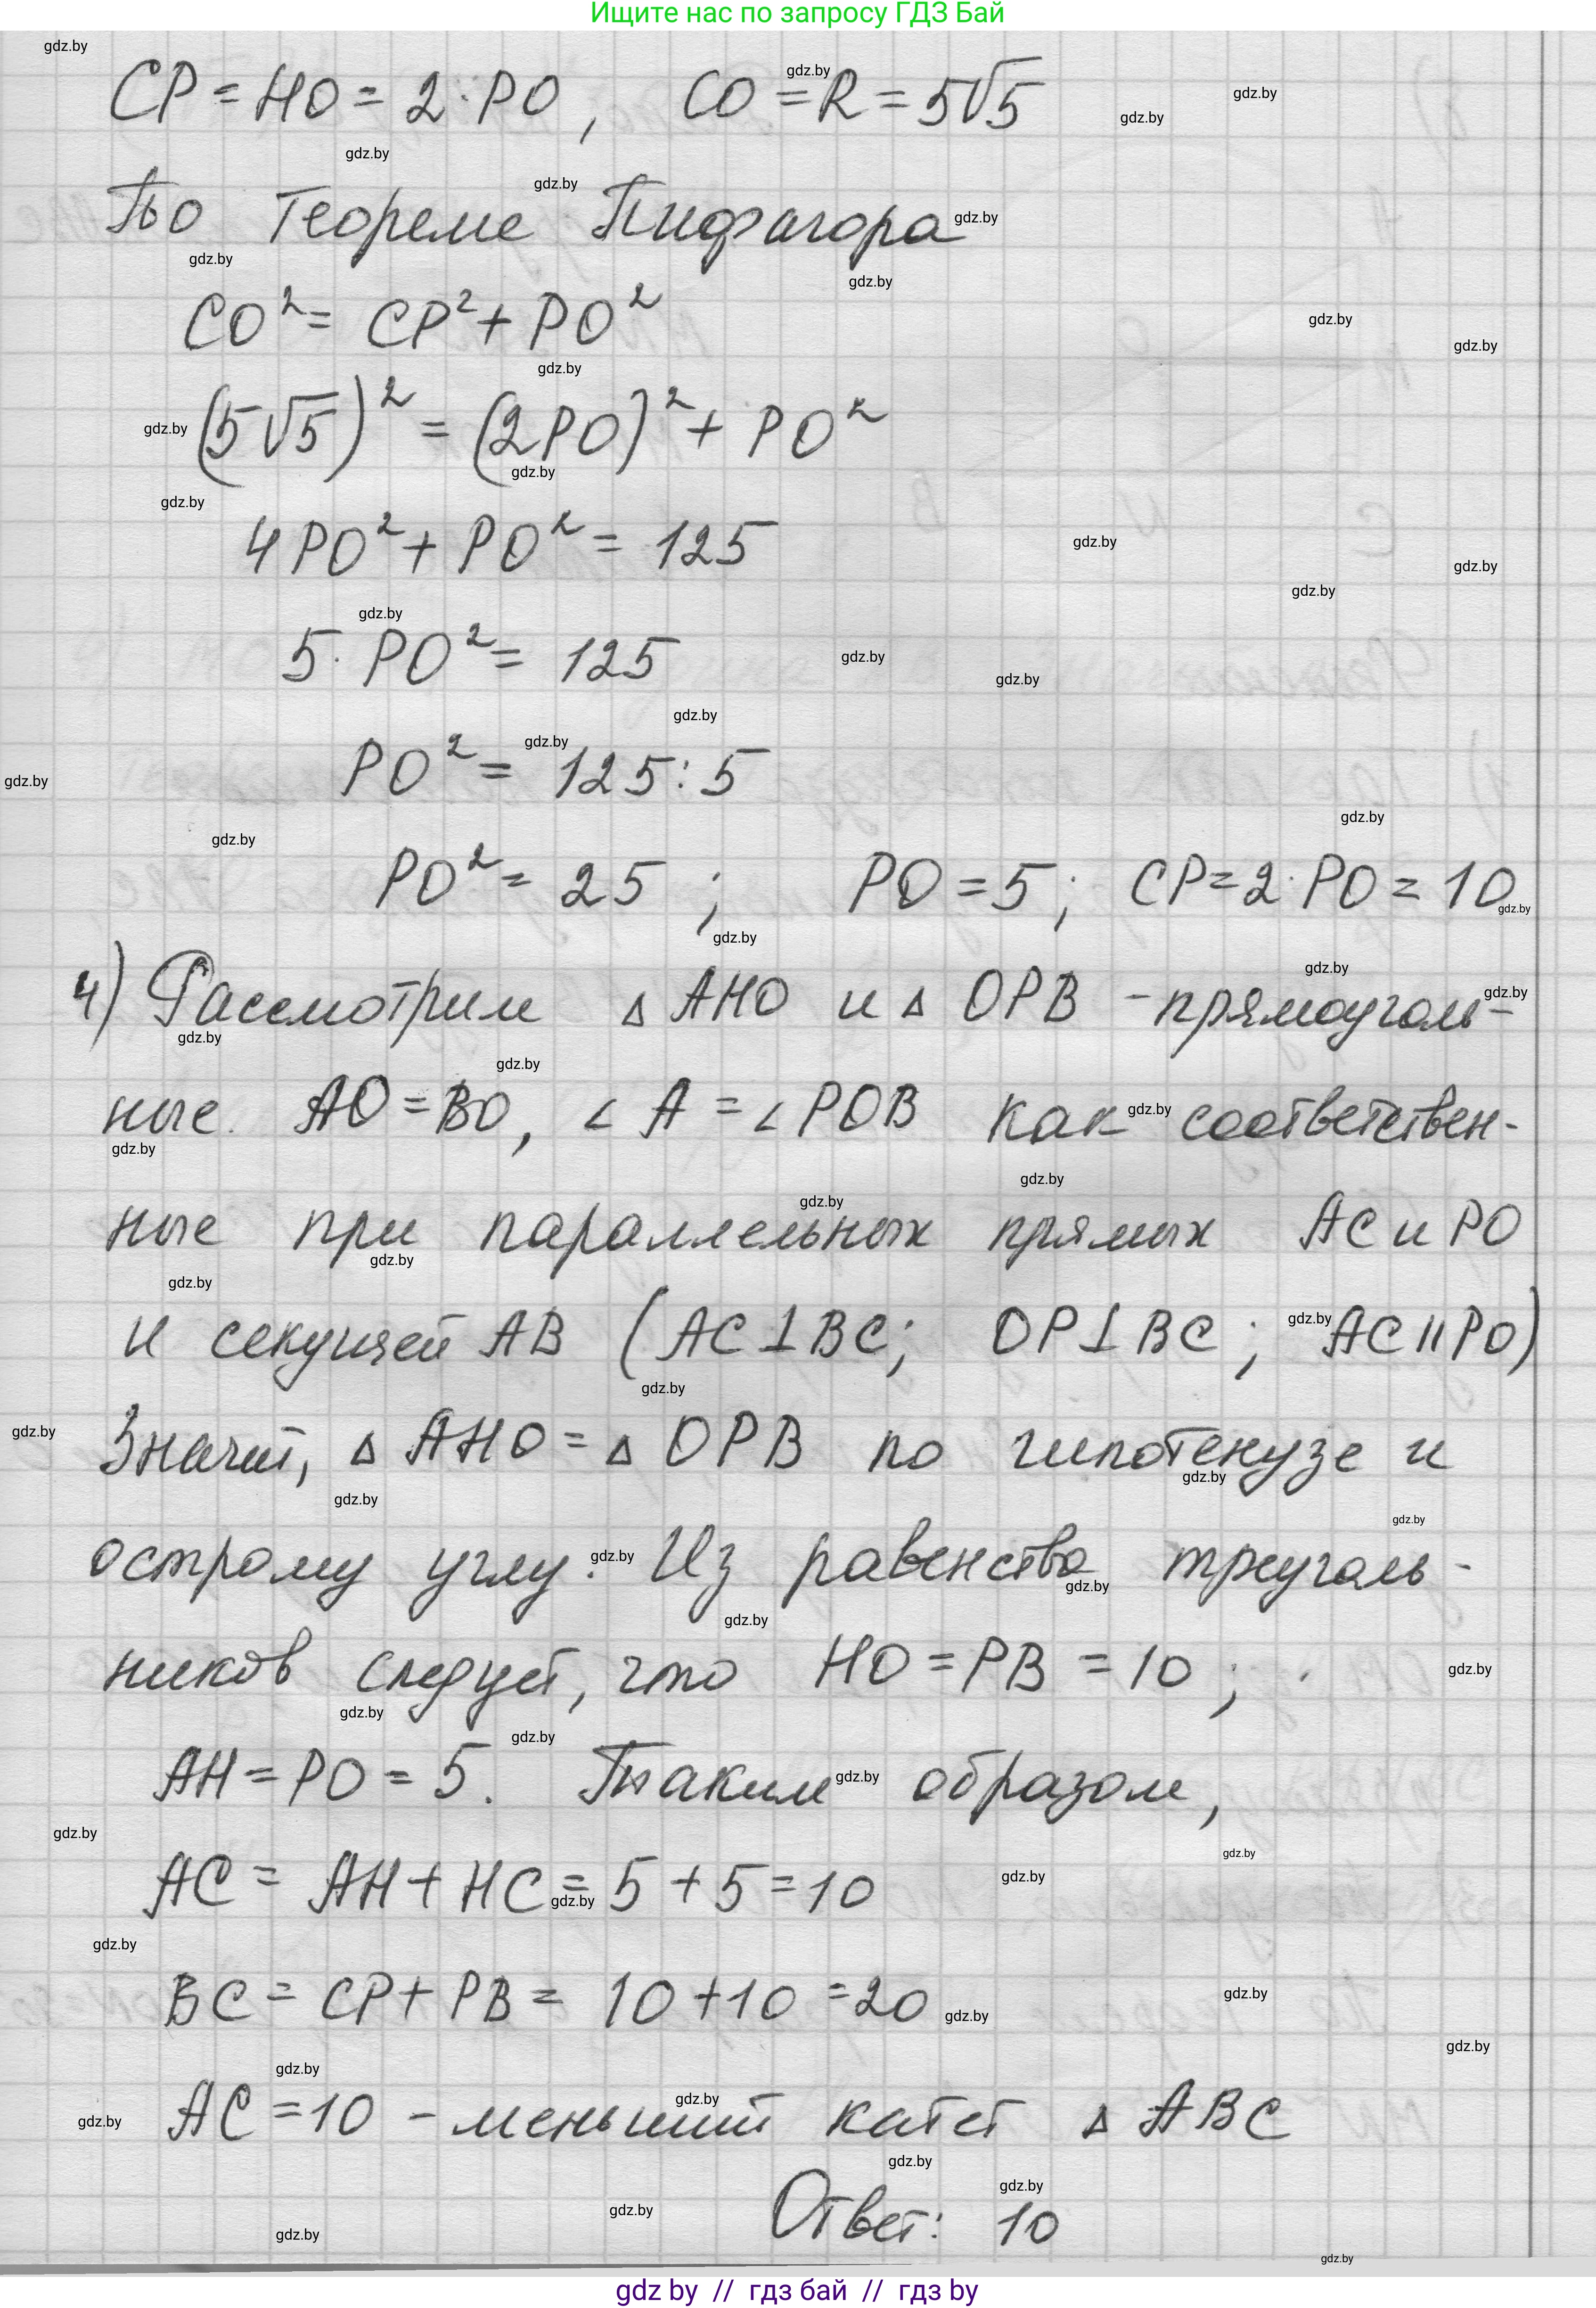 Ищите нас по запросу ГДЗ Бай
CP = HO = 2 · PO, CO = R = 5√5
По теореме Пифагора
CO² = CP² + PO²
(5√5)² = (2PO)² + PO²
4PO² + PO² = 125
5 · PO² = 125
PO² = 125 : 5
PO² = 25; PO = 5; CP = 2 · PO = 10
4) Рассмотрим △ AHO и △ OPB - прямоуголь-
ные. AO = BO, ∠ A = ∠ POB как соответствен-
ные при параллельных прямых AC и PO
и секущей AB (AC ⊥ BC; OP ⊥ BC; AC || PO)
Значит, △ AHO = △ OPB по гипотенузе и
острому углу. Из равенства треуголь-
ников следует, что HO = PB = 10;
AH = PO = 5. Таким образом,
AC = AH + HC = 5 + 5 = 10
BC = CP + PB = 10 + 10 = 20
AC = 10 - меньший катет △ ABC
Ответ: 10
gdz by // гдз бай // гдз by